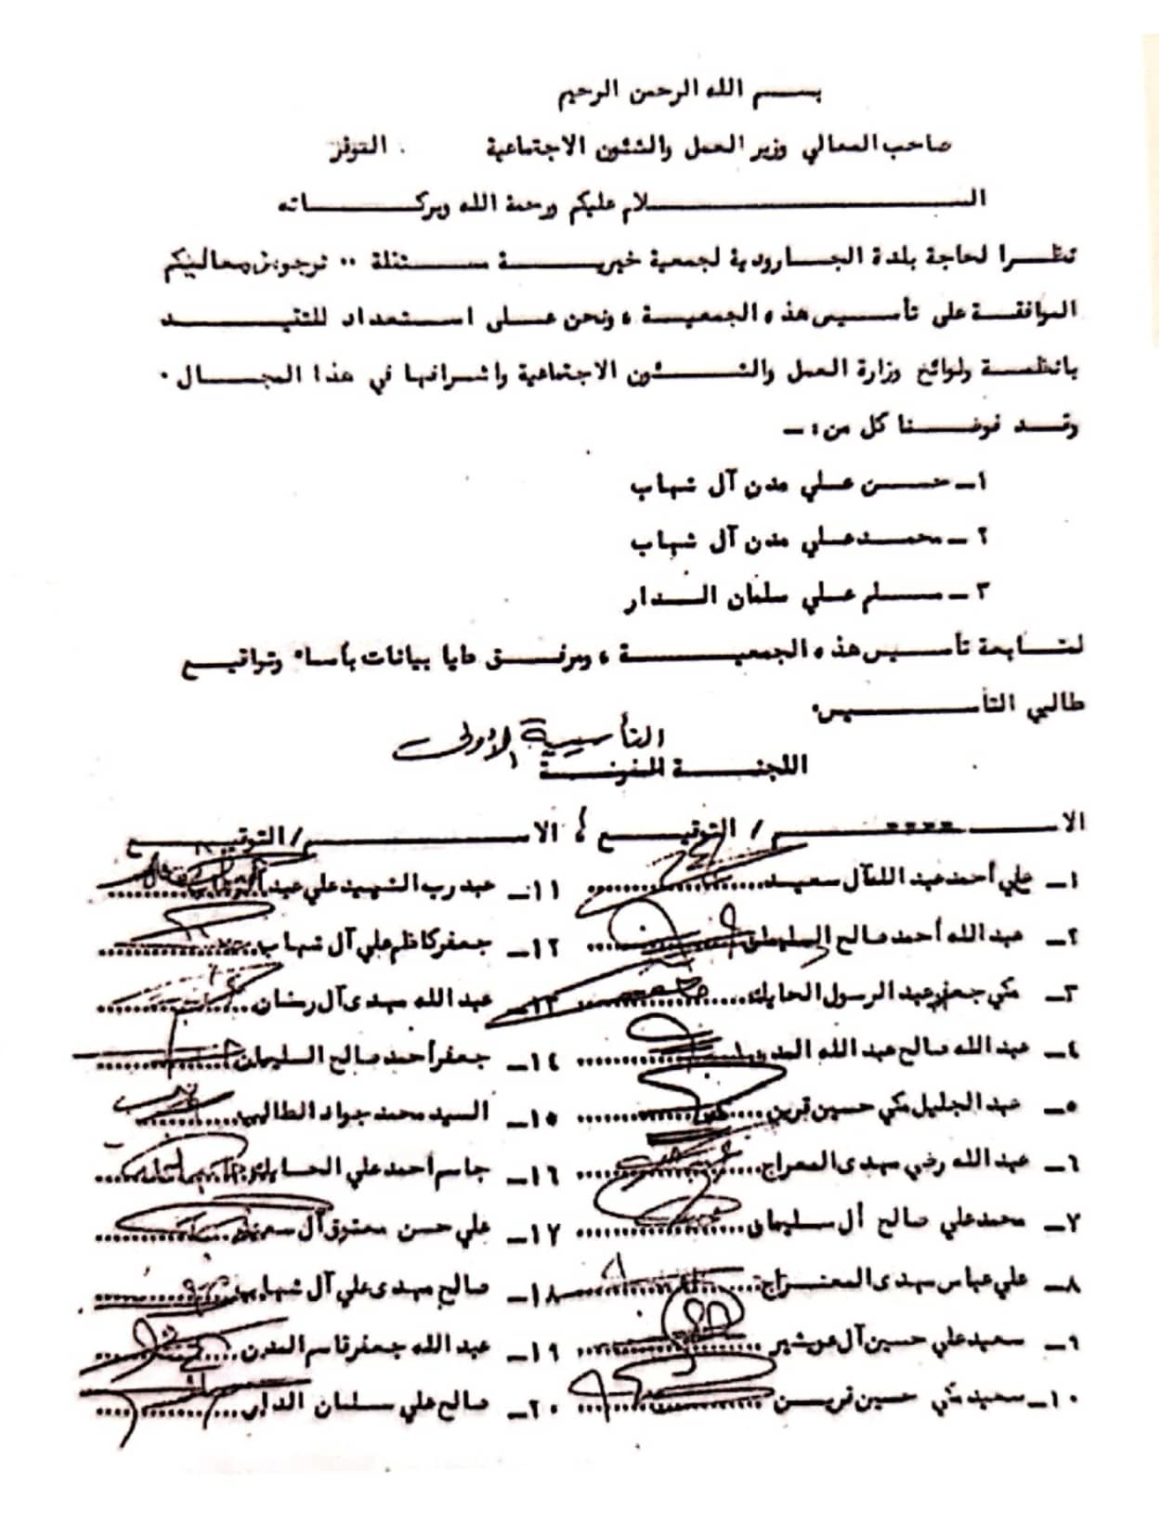 بسم الله الرحمن الرحيم
صاحب المعالي وزير العمل والشئون الاجتماعية الموقر
السلام عليكم ورحمة الله وبركاته
نظرا لحاجة بلدة الجارودية لجمعية خيرية مستقلة .. نرجو من معاليكم
الموافقة على تأسيس هذه الجمعية ، ونحن على استعداد للتقيد
بانظمة ولوائح وزارة العمل والشئون الاجتماعية واشرافها في هذا المجال .
وقد فوضنا كل من : ـ
١ـ حسن علي مدن آل شهاب
٢ ـ محمد علي مدن آل شهاب
٣ ـ سلم علي سلمان الدار
لمتابعة تأسيس هذه الجمعية ، ومرفق طيا بيانات بأساء وتواقيع
طالبي التأسيس.
التأسيسية الأولى
اللجنة المفوضة
الاسم / التوقيع ؛ الاسم / التوقيع
١ـ علي أحمد عبد الله آل سعيد ١١ـ عبد رب الشهيد علي عبد
٢ـ عبد الله أحمد صالح السليمان ١٢ـ جعفر كاظم علي آل شهاب
٣ـ مكي جعفر عبد الرسول الحايك ١٣ـ عبد الله مهدى آل رضان
٤ـ عبد الله صالح عبد الله المدن ١٤ـ جعفر أحمد صالح السليمان
٥ـ عبد الجليل مكي حسين قرين ١٥ـ السيد محمد جواد الطالب
٦ـ عبد الله رضي مهدى المعراج ١٦ـ جاسم احمد علي الحايك
٧ـ محمد علي صالح أل سليمان ١٧ـ علي حسن معتوق آل سعيد
٨ـ علي عباس مهدى المعراج ١٨ـ صالح مهدى علي آل شهاب
٩ـ سعيد علي حسين آل عوشير ١٩ـ عبد الله جعفر قاسم المدن
١٠ـ سعيد مكي حسين قرين ٢٠ـ صالح علي سلمان الدار